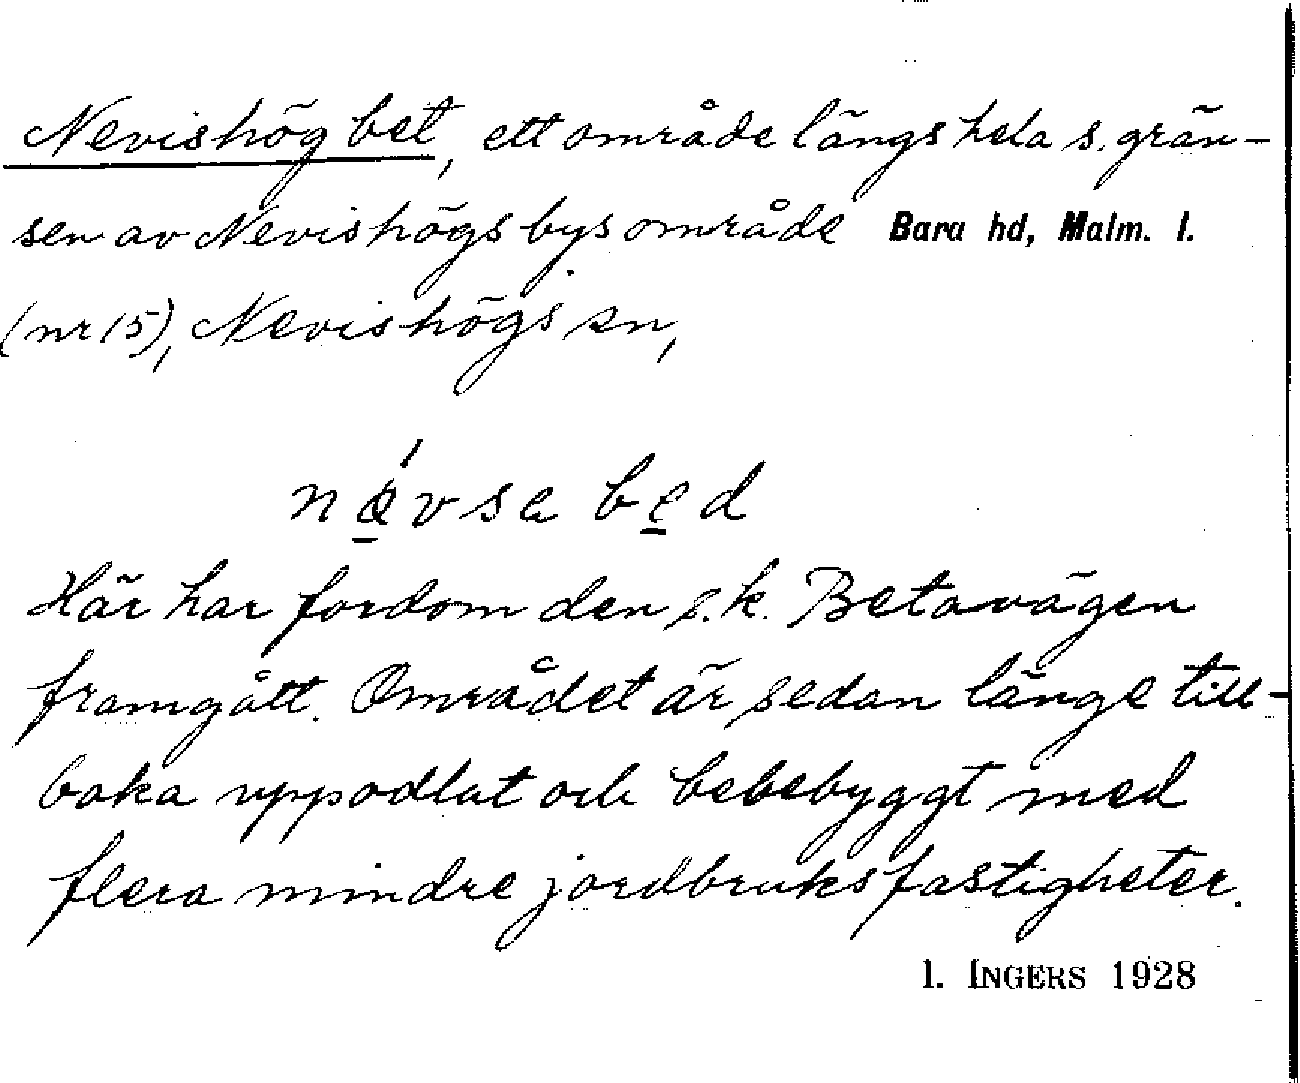 Nevishög bet, ett område längs hela s. grän-
sen av Nevishögs bys område Bara hd, Malm. l.
(nr 15), Nevishögs sn,
nǿvsa bed
Här har fordom den s.k. Betavägen
framgått. Området är sedan länge till-
baka uppodlat och bebebyggt med
flera mindre jordbruksfastigheter.
I. INGERS 1928